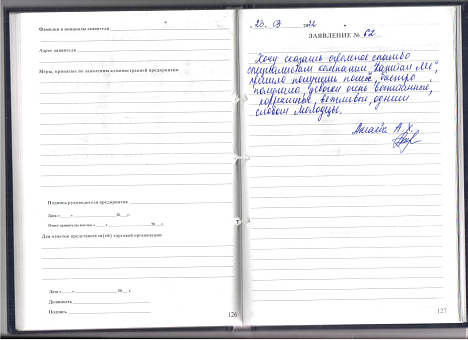 Фамилия и инициалы заявителя
Адрес заявителя
Меры, принятые по заявлению администрацией предприятия:
Подпись руководителя предприятия
Дата « » 20 г.
Ответ заявителю послан « » 20 г.
Для отметок представителя(ей) торговой организации
Дата « » 20 г.
Должность
Подпись
126
23. 03 2022
ЗАЯВЛЕНИЕ № 62
Хочу сказать огромное спасибо
специалистам компании "Капитал Ме",
пришла получить быстро
получила, девочки очень воспитанные,
вежливые, одним
словом Молодцы.
А. Х.
127